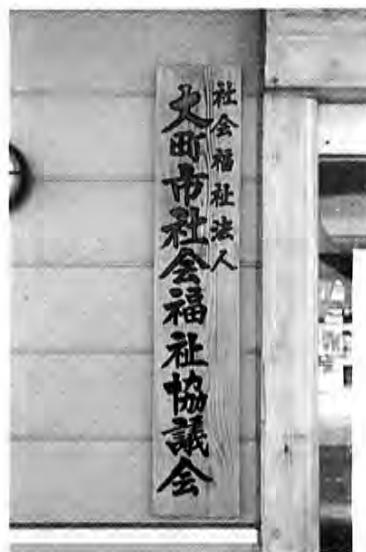 社会福祉法人
大町市社会福祉協議会